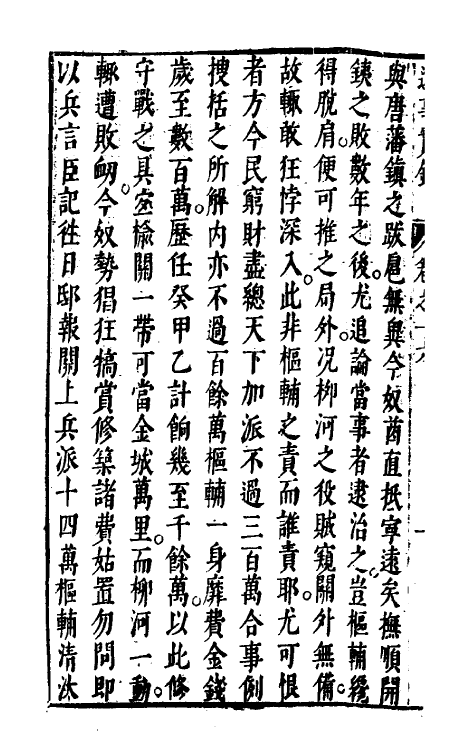 與唐藩鎮之跋扈無異今奴酋直抵寧遠矣撫順開
鐵之敗數年之後尤追論當事者逮治之豈樞輔纔
得脫肩便可推之局外况柳河之役賊窺關外無備
故輒敢狂悖深入此非樞輔之責而誰責耶尤可恨
者方今民窮財盡總天下加派不過三百萬合事例
搜括之所解内亦不過百餘萬樞輔一身靡費金錢
歲至數百萬歷任癸甲乙計餉幾至千餘萬以此修
守戰之具室榆關一帶可當金城萬里而柳河一動
輒遭敗衂今奴勢猖狂犒賞修築諸費姑置勿問即
以兵言臣記徃日邸報關上兵派十四萬樞輔清汰